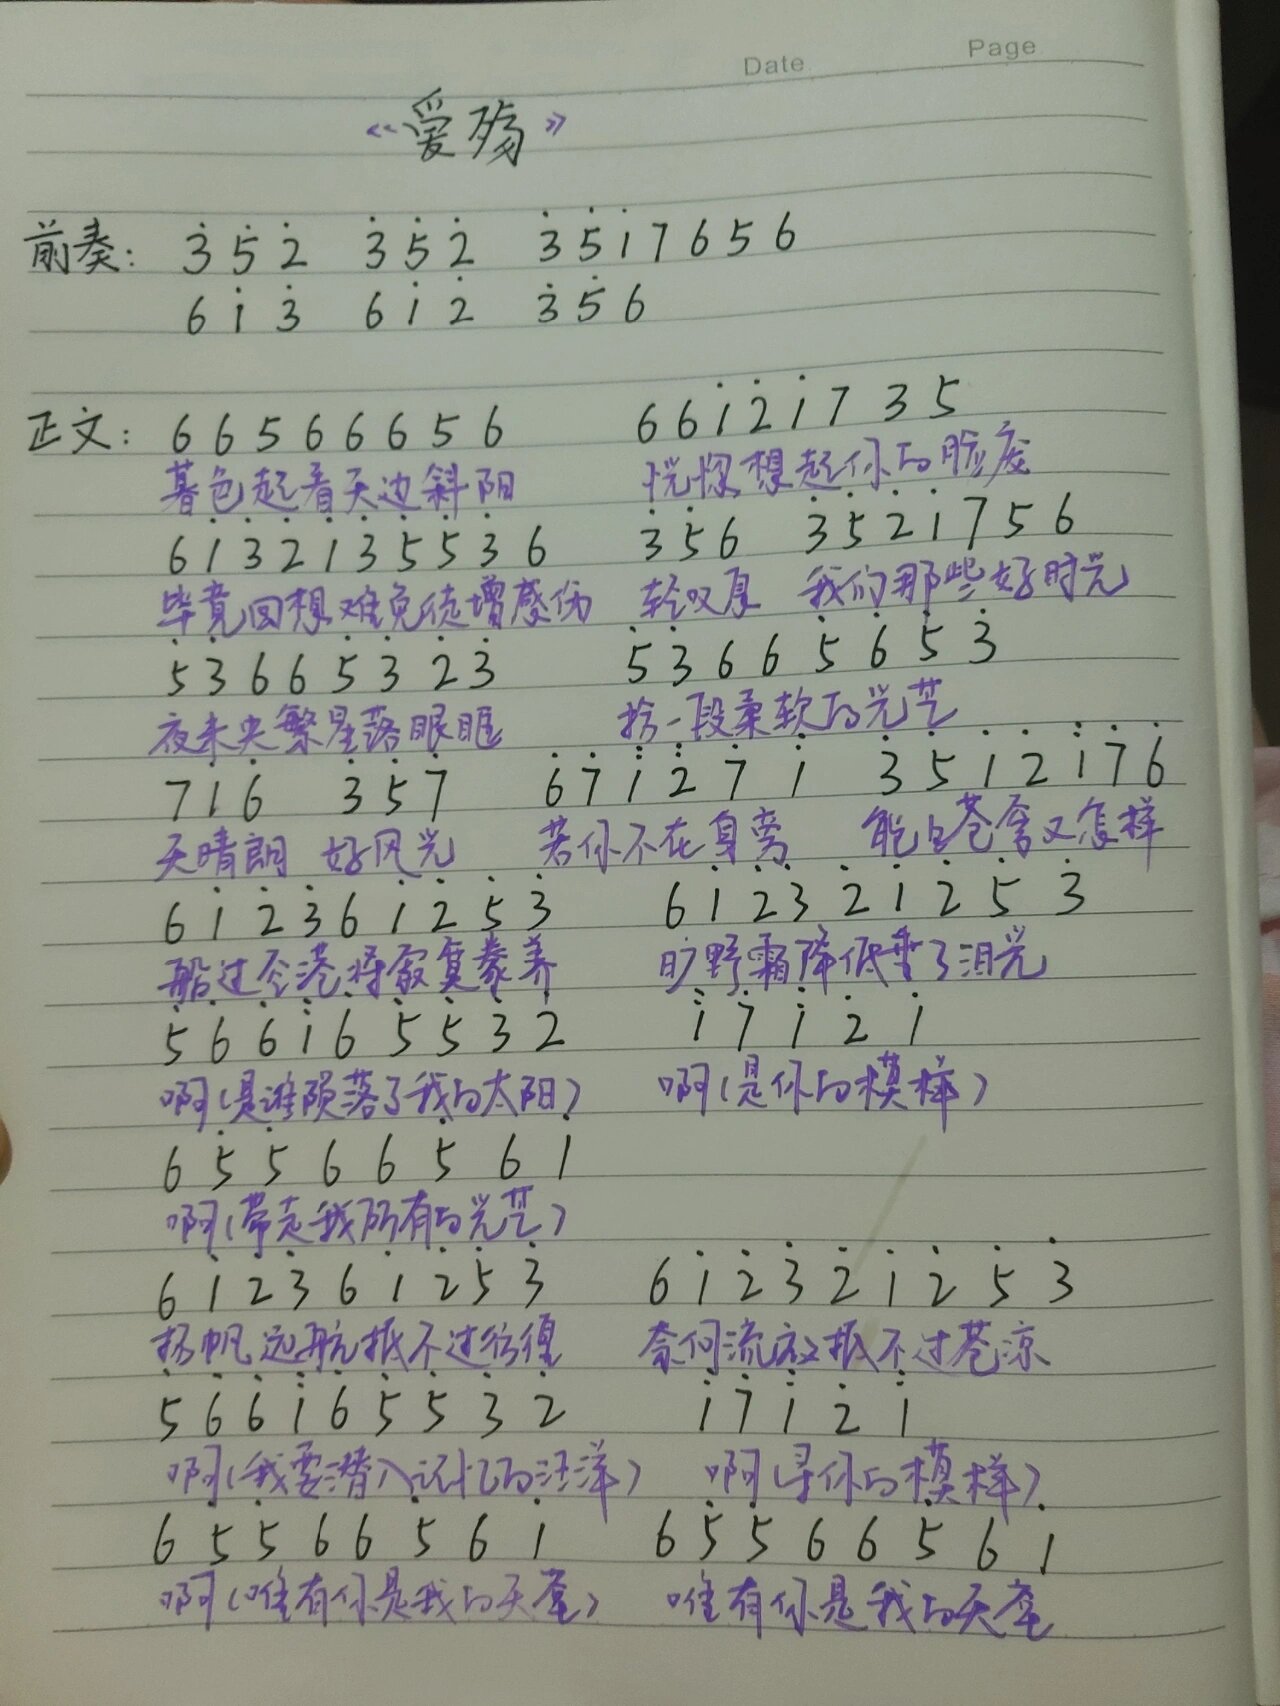 Date Page
《爱殇》
前奏: 3̇ 5̇ 2̇ 3̇ 5̇ 2̇ 3̇ 5̇ 1̇ 7 6 5 6
6 1̇ 3̇ 6 1̇ 2̇ 3̇ 5̇ 6
正文: 6 6 5 6 6 6 5 6 6 6 1̇ 2̇ 1̇ 7 3 5
暮色起看天边斜阳 恍惚想起你的脸庞
6 1̇ 3̇ 2̇ 1̇ 3̇ 5̇ 5̇ 3̇ 6 3̇ 5̇ 6 3̇ 5̇ 2̇ 1̇ 7 5 6
毕竟回想难免徒增感伤 轻叹息 我们那些好时光
5̇ 3̇ 6 6 5̇ 3̇ 2̇ 3̇ 5̇ 3̇ 6 6 5̇ 6̇ 5̇ 3̇
夜未央繁星落眼眶 拾一段柔软的光芒
7 1̇ 6 3̇ 5̇ 7 6̇ 7̇ 1̇ 2̇ 7̇ 1̇ 3̇ 5̇ 1̇ 2̇ 1̇ 7̇ 6̇
天晴朗 好风光 若你不在身旁 能上苍穹又怎样
6 1̇ 2̇ 3̇ 6 1̇ 2̇ 5̇ 3̇ 6 1̇ 2̇ 3̇ 2̇ 1̇ 2̇ 5̇ 3̇
船过空港将寂寞豢养 旷野霜降低垂了泪光
5̇ 6̇ 6̇ 1̇ 6̇ 5̇ 5̇ 3̇ 2̇ 1̇ 7̇ 1̇ 2̇ 1̇
啊(是谁陨落了我的太阳) 啊(是你的模样)
6 5̇ 5̇ 6 6 5̇ 6 1̇
啊(带走我所有的光芒)
6 1̇ 2̇ 3̇ 6 1̇ 2̇ 5̇ 3̇ 6 1̇ 2̇ 3̇ 2̇ 1̇ 2̇ 5̇ 3̇
扬帆远航抵不过彷徨 奈何流放抵不过苍凉
5̇ 6̇ 6̇ 1̇ 6̇ 5̇ 5̇ 3̇ 2̇ 1̇ 7̇ 1̇ 2̇ 1̇
啊(我要潜入记忆的汪洋) 啊(寻你的模样)
6 5̇ 5̇ 6 6 5̇ 6 1̇ 6 5̇ 5̇ 6 6 5̇ 6 1̇
啊(唯有你是我的天堂) 唯有你是我的天堂